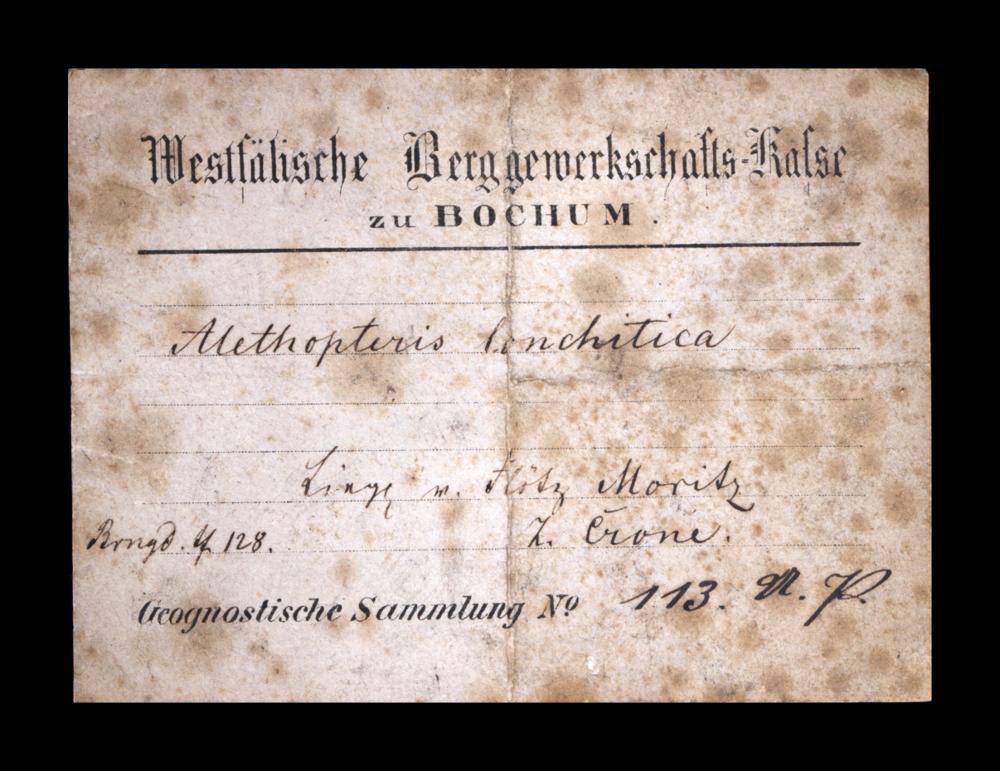 Westfälische Berggewerkschafts-Kasse
zu BOCHUM.
Alethopteris lonchitica
v. Flötz Moritz
Z. Crone.
Brngd. tf 128.
Geognostische Sammlung No 113. A. P.